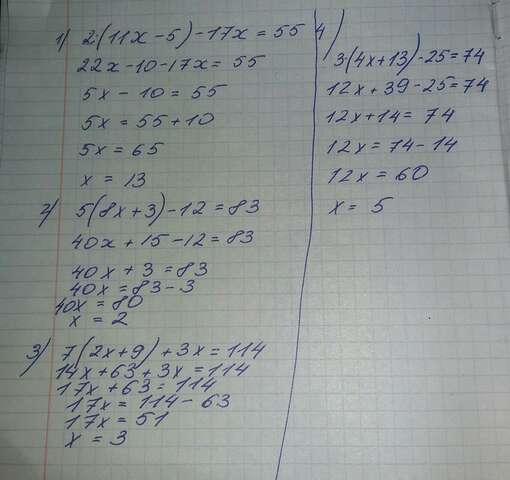 1) 2·(11x-5)-17x=55
22x-10-17x=55
5x-10=55
5x=55+10
5x=65
x=13
2) 5(8x+3)-12=83
40x+15-12=83
40x+3=83
40x=83-3
40x=80
x=2
3) 7(2x+9)+3x=114
14x+63+3x=114
17x+63=114
17x=114-63
17x=51
x=3
4)
3·(4x+13)-25=74
12x+39-25=74
12x+14=74
12x=74-14
12x=60
x=5